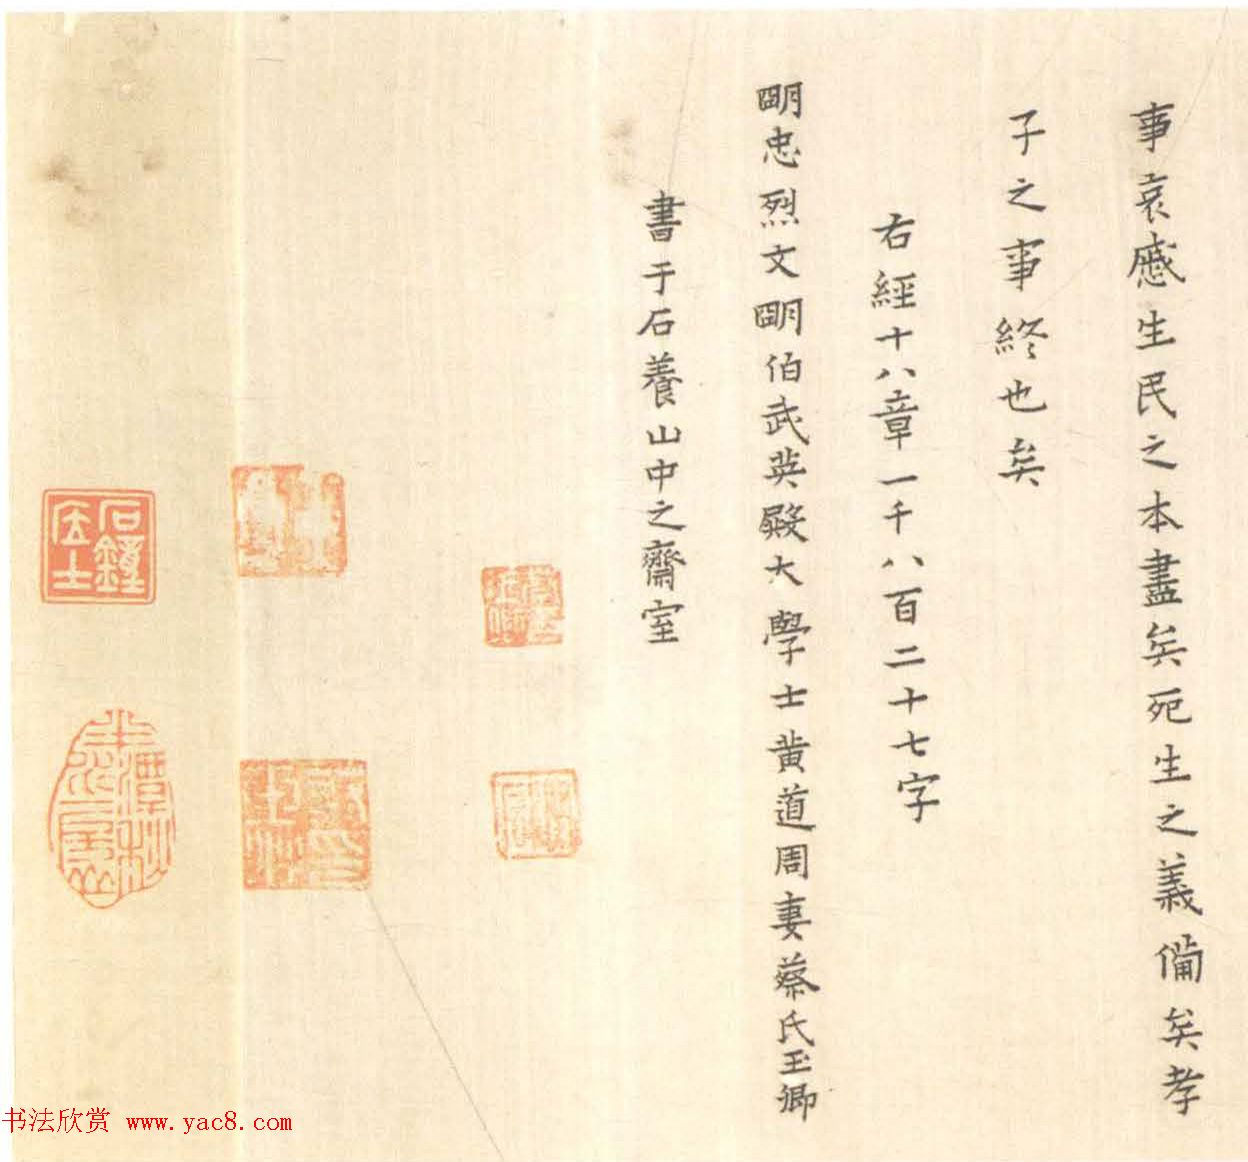 事哀慼生民之本盡矣死生之義備矣孝
子之事終也矣
右經十八章一千八百二十七字
明忠烈文明伯武英殿大學士黄道周妻蔡氏玉卿
書于石養山中之齋室
石鐘
书法欣赏 www.yac8.com